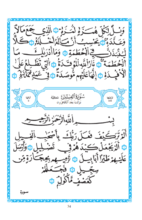 وَيْلٌ لِّكُلِّ هُمَزَةٍ لُّمَزَةٍ الَّذِي جَمَعَ مَالًا
وَعَدَّدَهُ يَحْسَبُ أَنَّ مَالَهُ أَخْلَدَهُ كَلَّا
لَيُنبَذَنَّ فِي الْحُطَمَةِ وَمَا أَدْرَاكَ مَا
الْحُطَمَةُ نَارُ اللَّهِ الْمُوقَدَةُ الَّتِي تَطَّلِعُ عَلَى
الْأَفْئِدَةِ إِنَّهَا عَلَيْهِم مُّؤْصَدَةٌ فِي عَمَدٍ مُّمَدَّدَةٍ
سُورَةُ الْفِيلِ
بِسْمِ اللَّهِ الرَّحْمَٰنِ الرَّحِيمِ
أَلَمْ تَرَ كَيْفَ فَعَلَ رَبُّكَ بِأَصْحَابِ الْفِيلِ
أَلَمْ يَجْعَلْ كَيْدَهُمْ فِي تَضْلِيلٍ وَأَرْسَلَ
عَلَيْهِمْ طَيْرًا أَبَابِيلَ تَرْمِيهِم بِحِجَارَةٍ مِّن
سِجِّيلٍ فَجَعَلَهُمْ
كَعَصْفٍ مَّأْكُولٍ
سورة